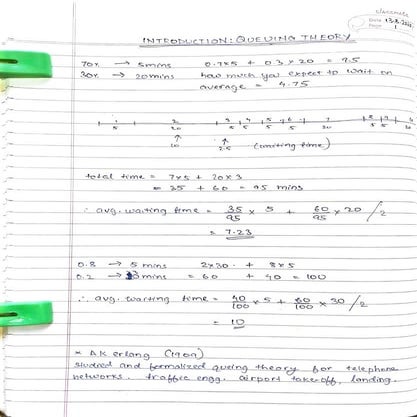 Date 13.8.2021
Page 1
INTRODUCTION: QUEUING THEORY
70% → 5 mins 0.7×5 + 0.3×20 = 9.5
30% → 20 mins how much you expect to wait on
average = 4.75
1 2 3 4 5 6 7 8 9
5 20 5 5 5 5 20 5 5
↑ ↑ (waiting time)
10 2.5
total time = 7×5 + 20×3
= 35 + 60 = 95 mins
∴ avg. waiting time = 35/95 × 5 + 60/95 × 20 / 2
= 7.23
0.8 → 5 mins 2×30 + 8×5
0.2 → mins = 60 + 40 = 100
∴ avg. waiting time = 40/100 × 5 + 60/100 × 30 / 2
= 10
* AK erlang (1909)
studied and formalized queing theory for telephone
networks. traffic engg. airport takeoff, landing.